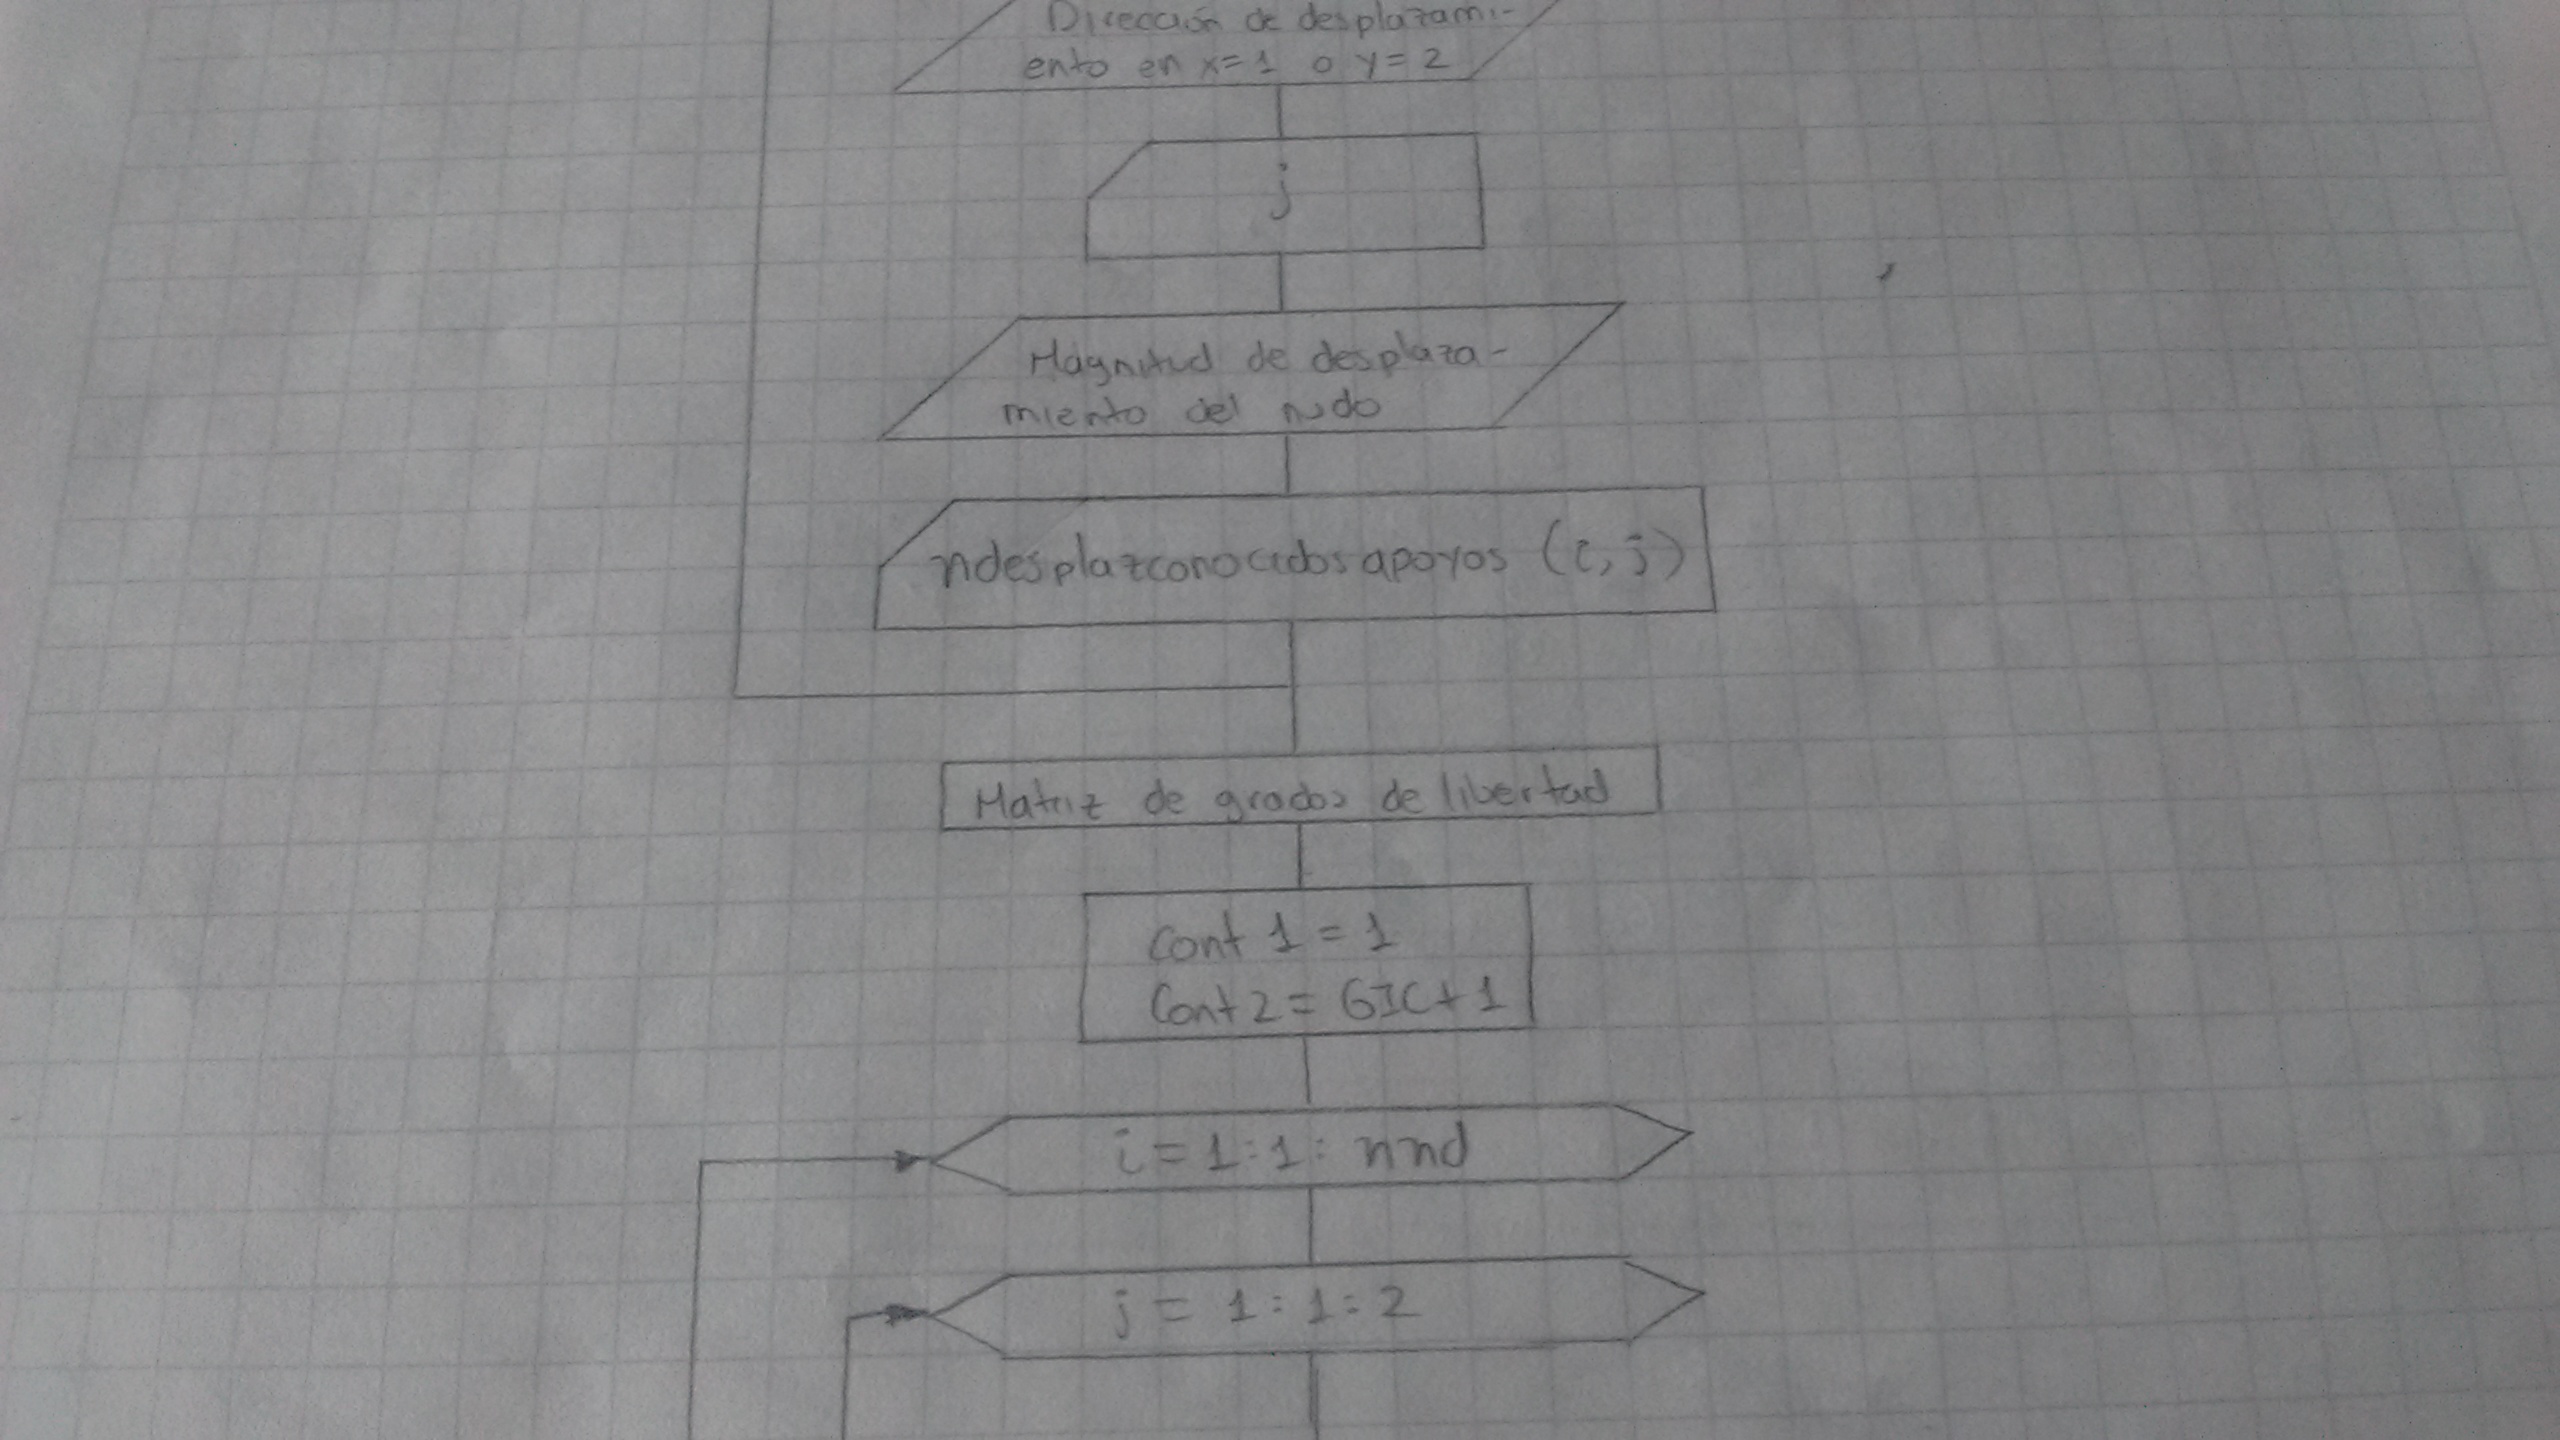 Dirección de desplazami-
ento en x=1 o y=2
j
Magnitud de desplaza-
miento del nudo
ndesplazconocidosapoyos (i,j)
Matriz de grados de libertad
Cont 1 = 1
Cont 2 = GIC+1
i = 1:1: nnd
j = 1:1:2